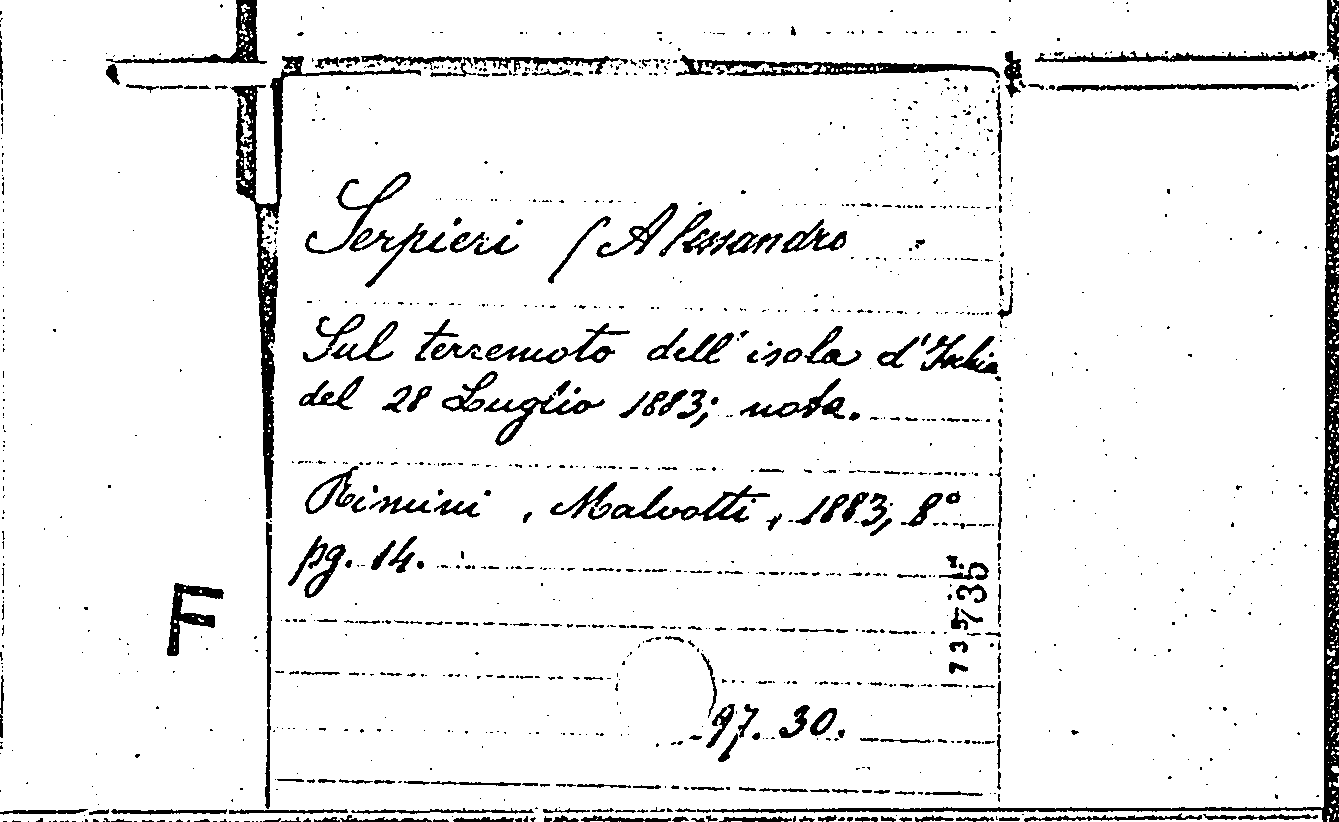 Serpieri (Alessandro
Sul terremoto dell'isola d'Ischia
del 28 Luglio 1883; nota.
Rimini, Malvotti, 1883, 8°
pg. 14.
F
735
97. 30.